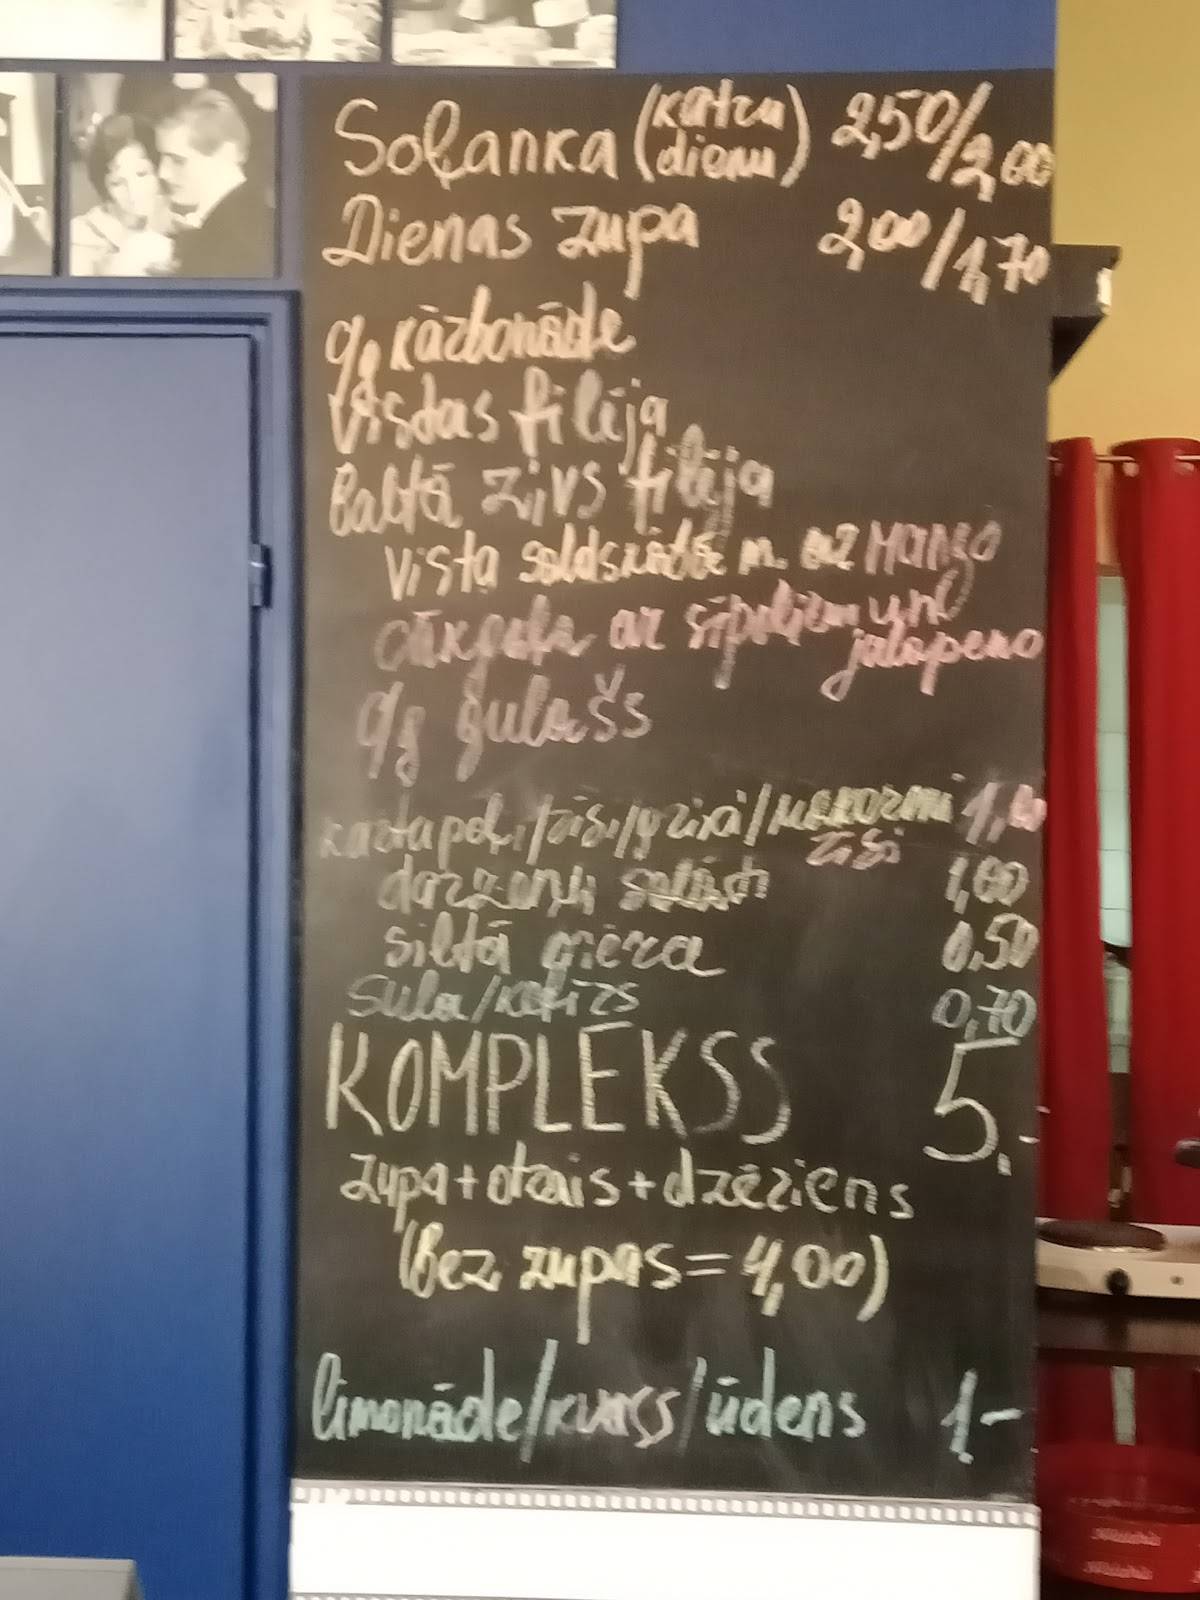 Soļanka (katru dienu) 2,50/2,00
Dienas zupa 2,00/1,70
c/g karbonāde
Vistas fileja
Baltā zivs fileja
Vista saldskābā m. ar Mango
ar sīpoliem un jalapeno
c/g gulašs
kartupeļi/rīsi/griķi/makaroni
rīsi
dārzeņi, salāti 1,00
siltā mērce 0,50
Sula/kefīrs 0,70
KOMPLEKSS 5.-
zupa+otrais+dzēriens
(Bez zupas=4,00)
limonāde/kvass/ūdens 1-